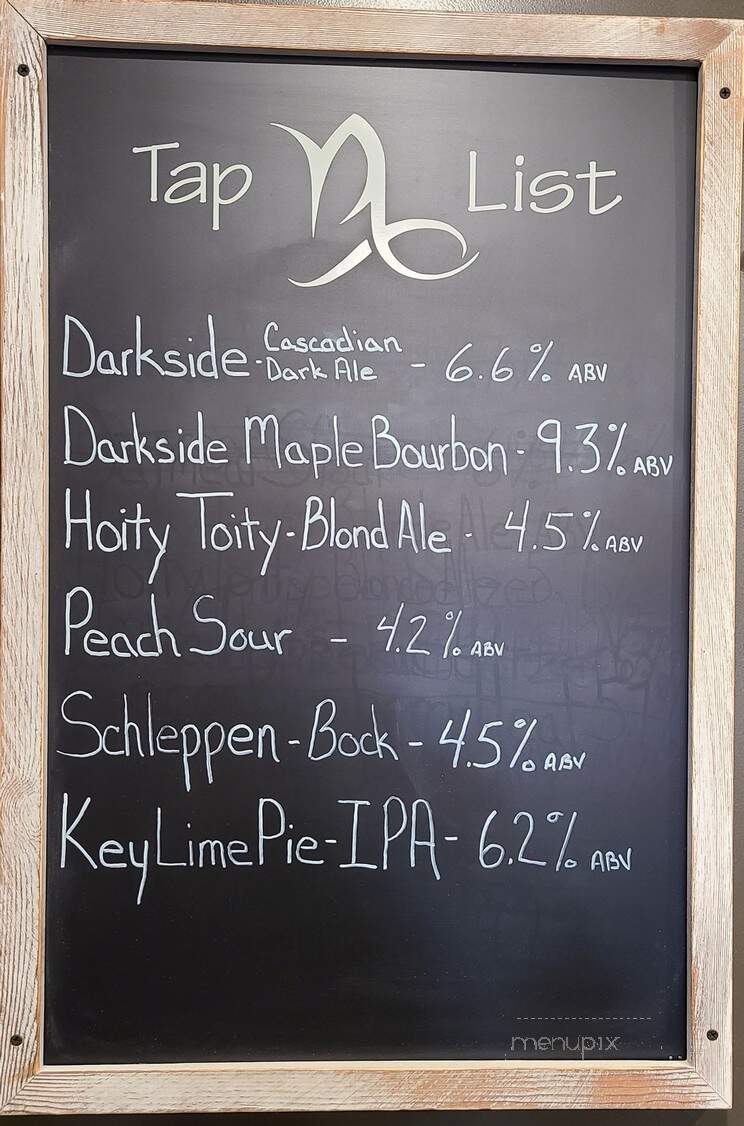 Tap List
Darkside - Cascadian Dark Ale - 6.6% ABV
Darkside Maple Bourbon - 9.3% ABV
Hoity Toity - Blond Ale - 4.5% ABV
Peach Sour - 4.2% ABV
Schleppen - Bock - 4.5% ABV
Key Lime Pie - IPA - 6.2% ABV
menupix